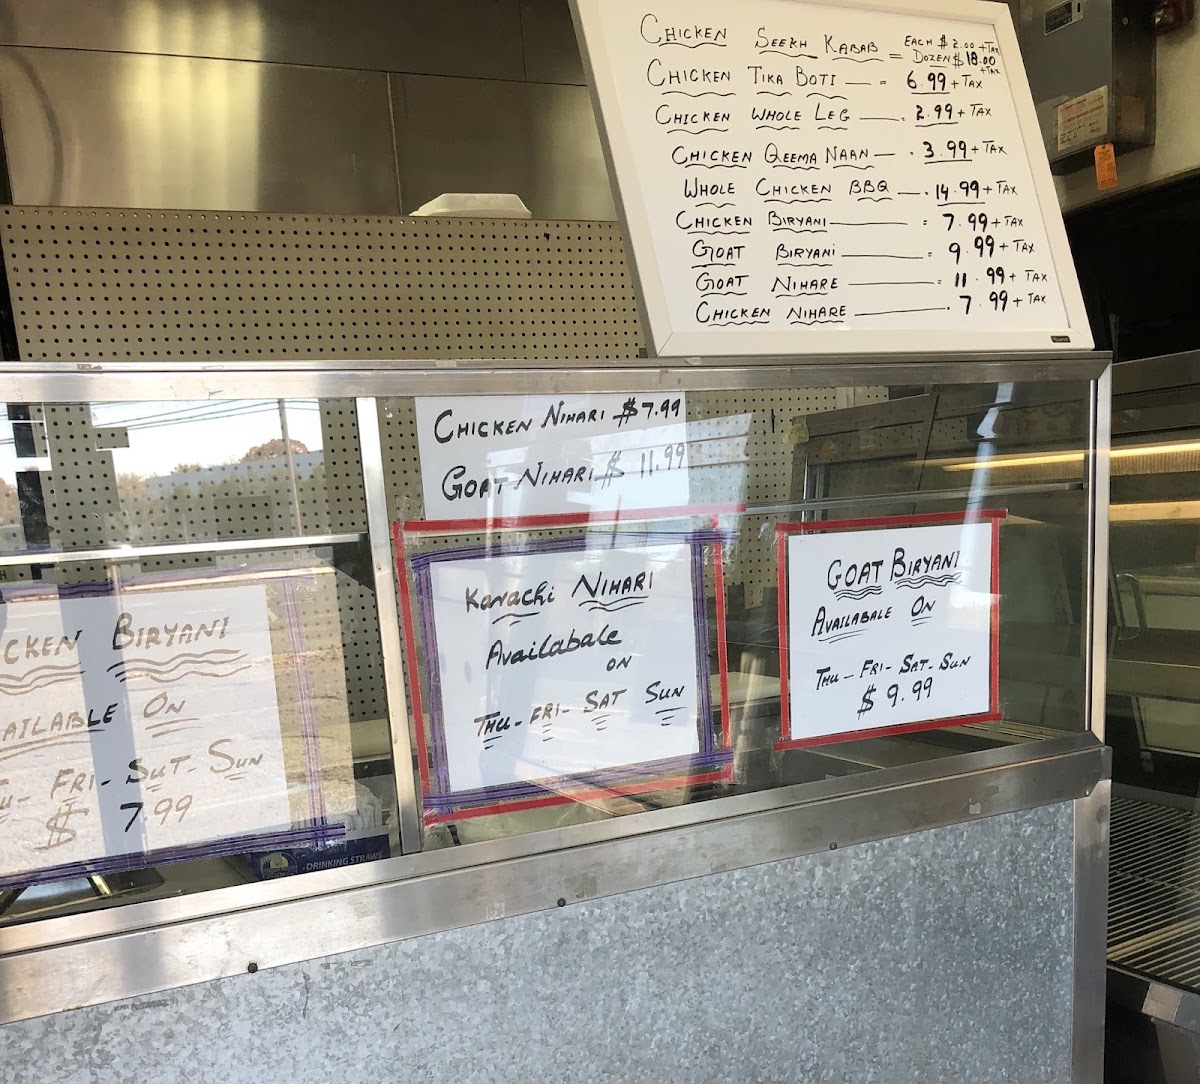 CHICKEN SEEKH KABAB = EACH $ 2.00 +TAX
DOZEN $ 18.00 +TAX
CHICKEN TIKA BOTI — = 6.99 + TAX
CHICKEN WHOLE LEG —. 2.99 + TAX
CHICKEN QEEMA NAAN — . 3.99 + TAX
WHOLE CHICKEN BBQ —. 14.99 + TAX
CHICKEN BIRYANI — = 7.99 + TAX
GOAT BIRYANI — = 9.99 + TAX
GOAT NIHARE — = 11.99 + TAX
CHICKEN NIHARE — . 7.99 + TAX
CHICKEN NIHARI $7.99
GOAT NIHARI $ 11.99
CKEN BIRYANI
AILABLE ON
U- FRI- SUT- SUN
$ 7.99
Karachi NIHARI
Availabale
ON
THU - FRI - SAT SUN
GOAT BIRYANI
AVAILABALE ON
THU - FRI - SAT - SUN
$ 9.99
DRINKING STRAWS